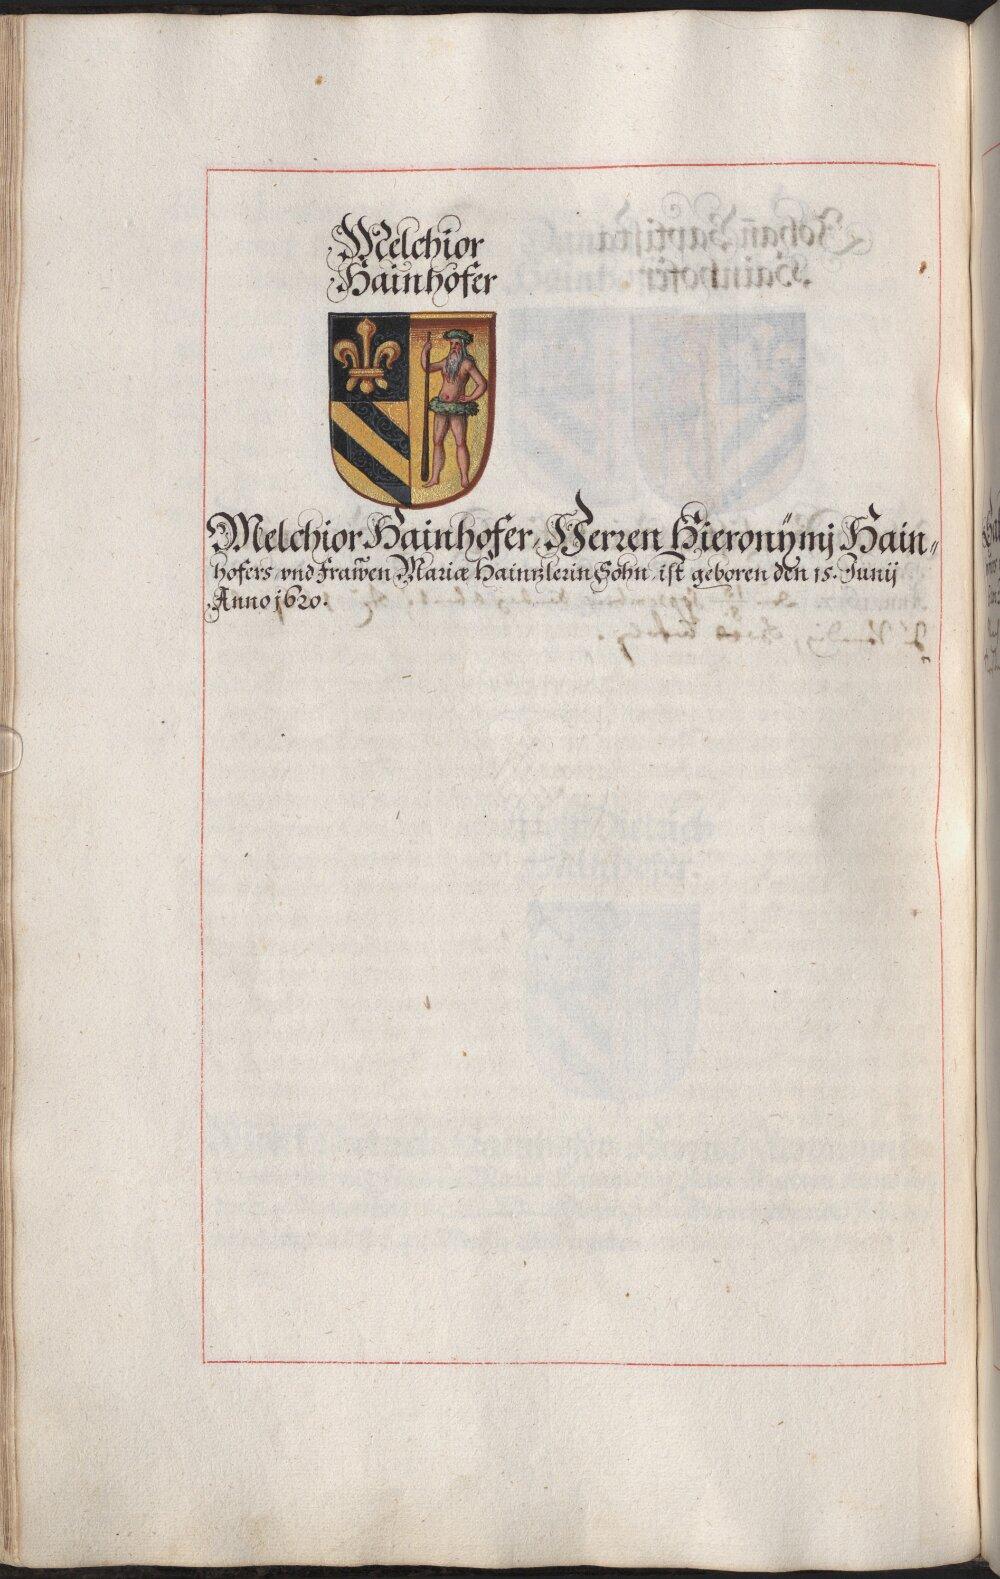 Melchior
Hainhofer
Melchior Hainhofer, Herren Hieronÿmj Hain⸗
hofers, vnd Frawen Mariæ Haintzlerin Sohn, ist geboren den 15. Junij
Anno 1620.